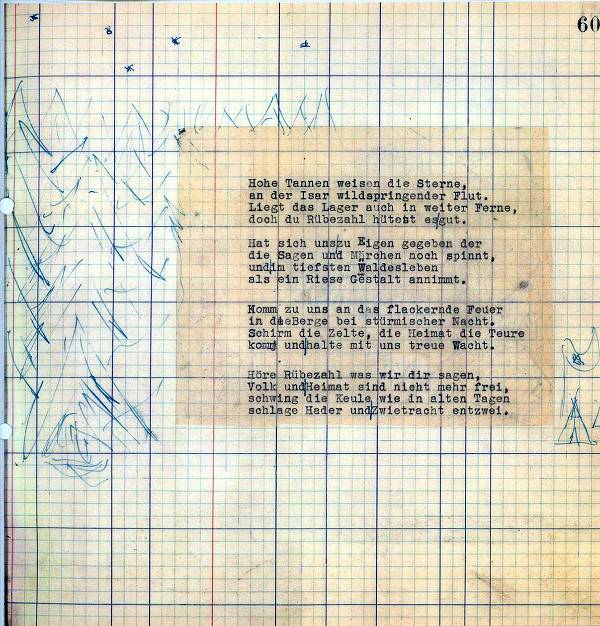 60
Hohe Tannen weisen die Sterne,
an der Isar wildspringender Flut.
Liegt das Lager auch in weiter Ferne,
doch du Rübezahl hütest es gut.
Hat sich uns zu Eigen gegeben der
die Sagen und Märchen noch spinnt,
und im tiefsten Waldesleben
als ein Riese Gestalt annimmt.
Komm zu uns an das flackernde Feuer
in die Berge bei stürmischer Nacht.
Schirm die Zelte, die Heimat die Teure
komm und halte mit uns treue Wacht.
Höre Rübezahl was wir dir sagen,
Volk und Heimat sind nicht mehr frei,
schwing die Keule wie in alten Tagen
schlage Hader und Zwietracht entzwei.